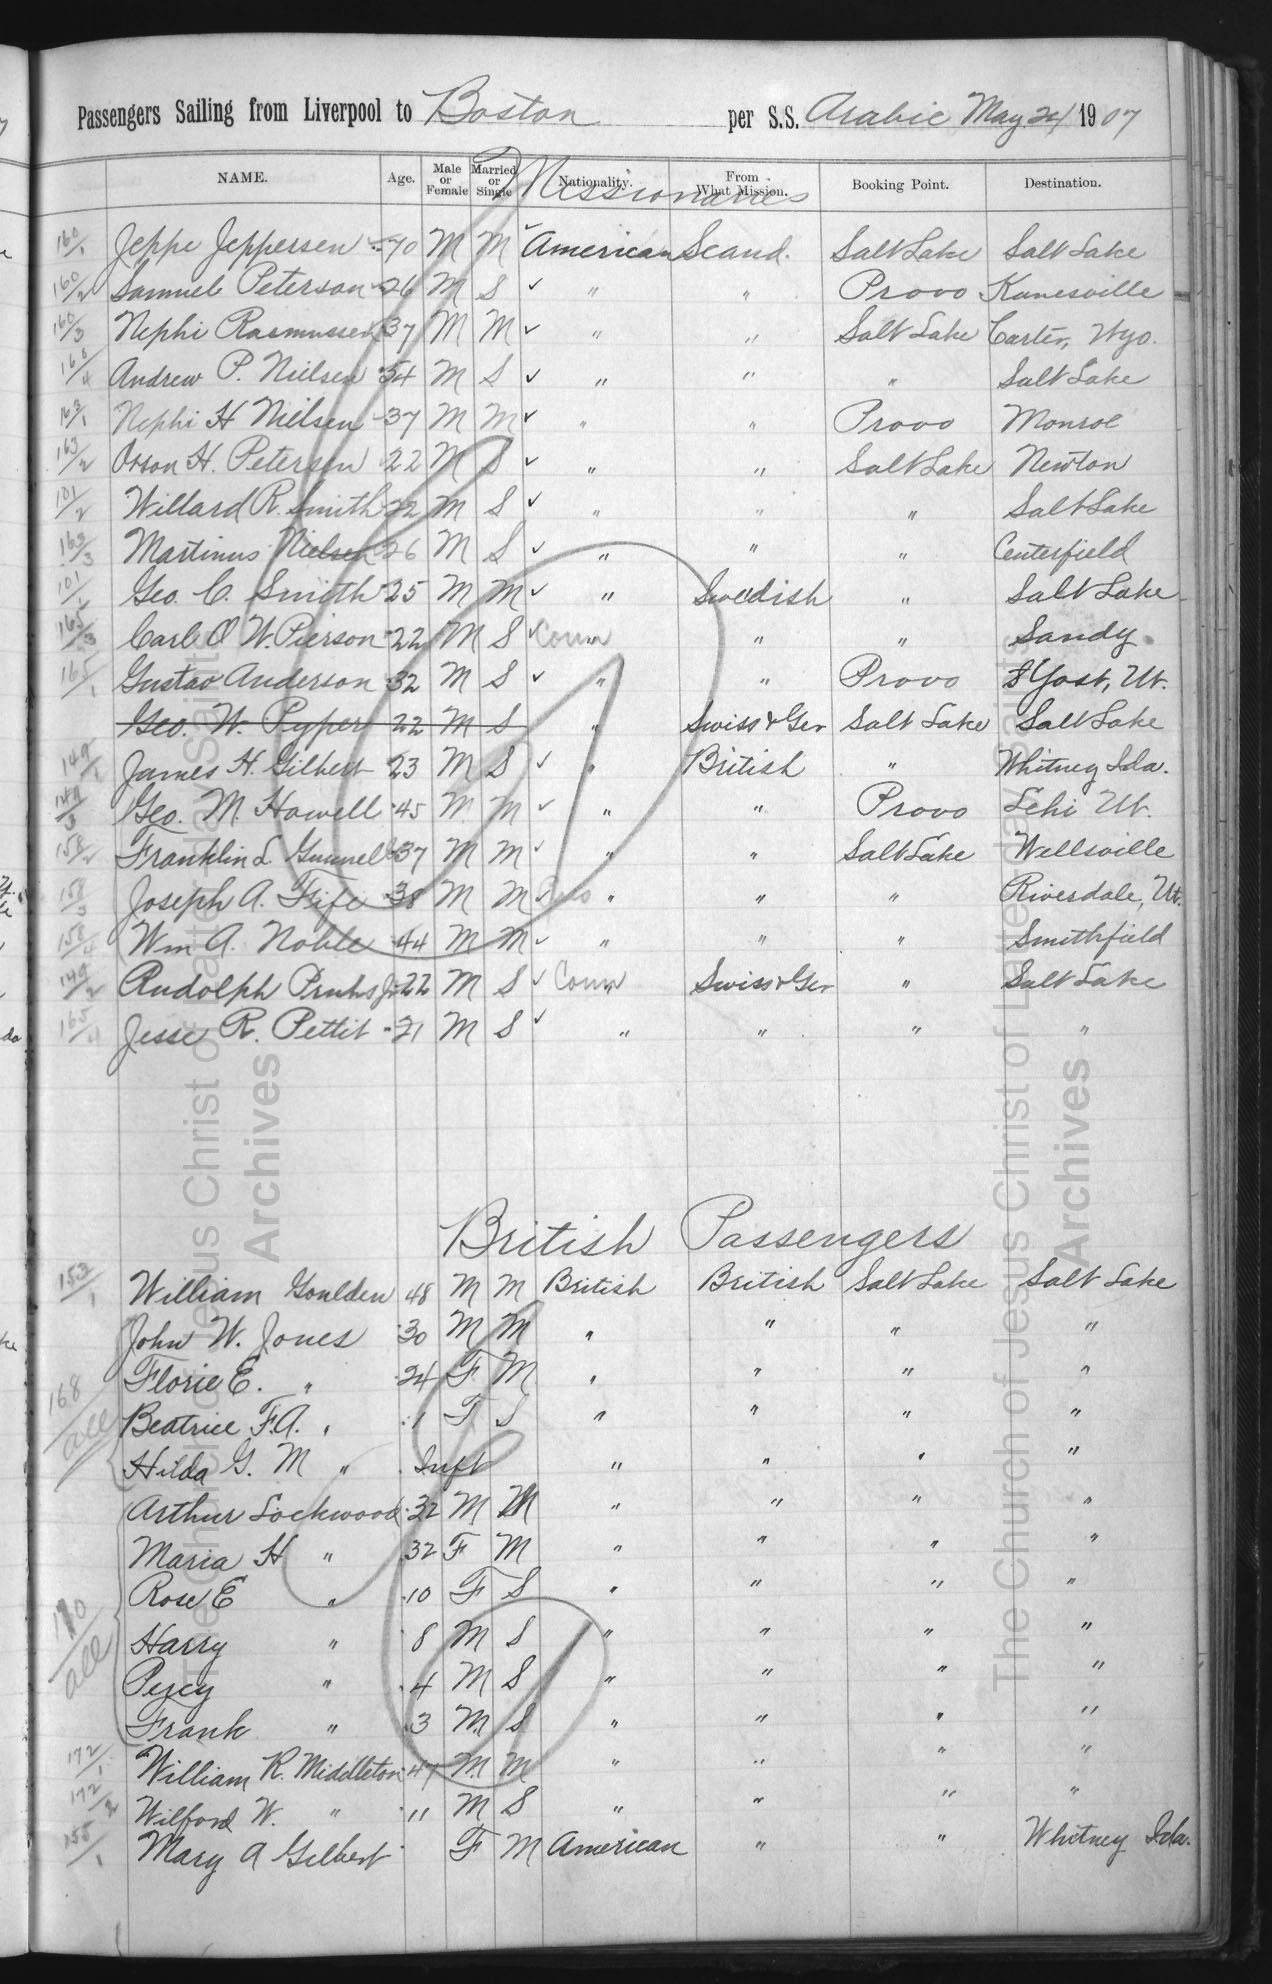 Passengers Sailing from Liverpool to Boston per S.S. Arabic May 24 1907
NAME. Age. Male or Female Married or Single Nationality. From What Mission. Booking Point. Destination.
Missionaries
160/1 Jeppe Jeppersen 70 M M American Scand. Salt Lake Salt Lake
160/2 Samuel Peterson 26 M S ✓ " " Provo Kanesville
160/3 Nephi Rasmussen 37 M M ✓ " " Salt Lake Carter, Wyo.
160/4 Andrew P. Nielsen 54 M S ✓ " " " Salt Lake
163/1 Nephi H Nielsen 37 M M ✓ " " Provo Monroe
163/2 Orson H. Petersen 22 M S ✓ " " Salt Lake Newton
101/2 Willard R. Smith 22 M S ✓ " " " Salt Lake
163/3 Martinus Nielsen 26 M S ✓ " " " Centerfield
101/1 Geo. C. Smith 25 M M ✓ " Swedish " Salt Lake
165/3 Carl O W. Pierson 22 M S ✓ Conn " " " Sandy
165/1 Gustav Anderson 32 M S ✓ " " Provo Yost, Ut.
Geo. W. Pyper 22 M S " Swiss & Ger Salt Lake Salt Lake
149/1 James H. Gilbert 23 M S ✓ " British " Whitney Ida.
149/3 Geo. M. Howell 45 M M ✓ " " Provo Lehi Ut.
158/2 Franklin L Gunnell 37 M M ✓ " " Salt Lake Wellsville
158/3 Joseph A. Fife 38 M M " " " Riverdale, Ut.
158/4 Wm A. Noble 44 M M ✓ " " " Smithfield
149/2 Rudolph Pruhs Jr 22 M S ✓ Conn " Swiss & Ger " Salt Lake
165/4 Jesse R. Pettit 21 M S ✓ " " " "
British Passengers
153/1 William Goulden 48 M M British British Salt Lake Salt Lake
John W. Jones 30 M M " " " "
168 all Florie E. " 24 F M " " " "
Beatrice F.A. " 1 F S " " " "
Hilda G. M " Inft " " " "
Arthur Lockwood 32 M M " " " "
Maria H " 32 F M " " " "
Rose E " 10 F S " " " "
170 all Harry " 8 M S " " " "
Percy " 4 M S " " " "
Frank " 3 M S " " " "
172/1 William R. Middleton 47 M M " " " "
172/2 Wilford W. " 11 M S " " " "
155/1 Mary A Gilbert F M American " " Whitney Ida.
The Church of Jesus Christ of Latter-day Saints
Archives
The Church of Jesus Christ of Latter-day Saints
Archives